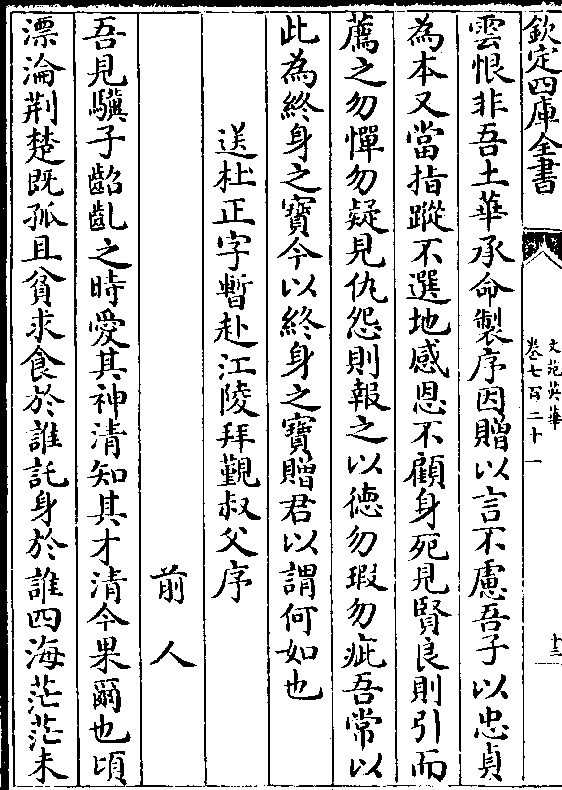 欽定四庫全書
文苑英華
卷七百二十一
十三
雲恨非吾土華承命製序因贈以言不慮吾子以忠貞
為本又當指蹤不選地感恩不顧身死見賢良則引而
薦之勿憚勿疑見仇怨則報之以德勿瑕勿疵吾常以
此為終身之寳今以終身之寳贈君以謂何如也
送杜正字暫赴江陵拜覲叔父序
前人
吾見驥子齠齔之時愛其神清知其才清今果爾也頃
漂淪荆楚既孤且貧求食於誰託身於誰四海茫茫未